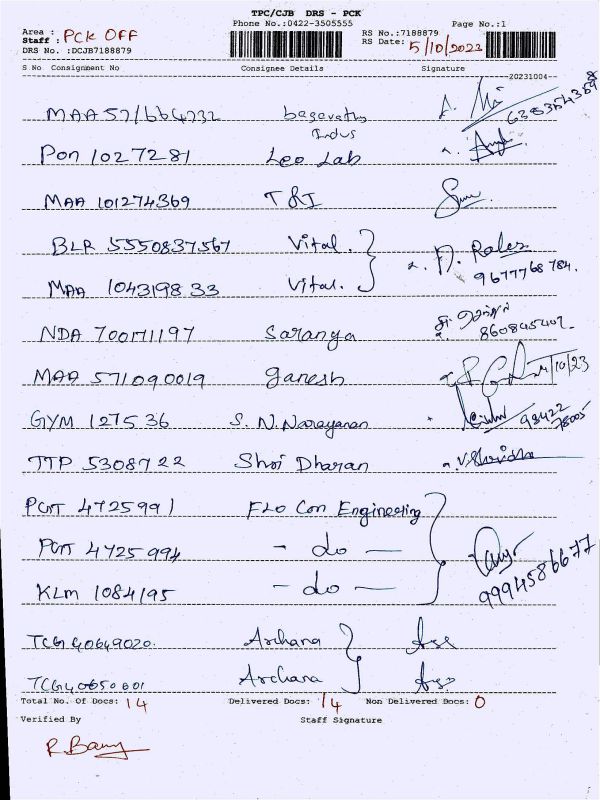 TPC/CJB DRS - PCK
Phone No.:0422-3505555 Page No.:1
Area :
Staff : PCK OFF
DRS No. :DCJB7188879
RS No.:7188879
RS Date: 5/10/2023
S No Consignment No Consignee Details Signature
20231004
MAA 571664232
Indus
Pon 1027281 Leo Lab
MAA 101274369 T&I
BLR 5550837567 Vital.
MAA 104319833 Vital. 9677768784.
NDA 700171197 Saranya
MAA 571090019 Ganesh
GYM 127536 S. N. Narayanan 93422
TTP 5308722 Shri Dharan
PGT 4725991 Flo Con Engineering
PGT 4725994 - do -
KLM 1084195 - do - 9994586677
TCG 40649020. Archana
TCG 40650601 Archana
Total No. Of Docs: 14 Delivered Docs: 14 Non Delivered Docs: 0
Verified By Staff Signature